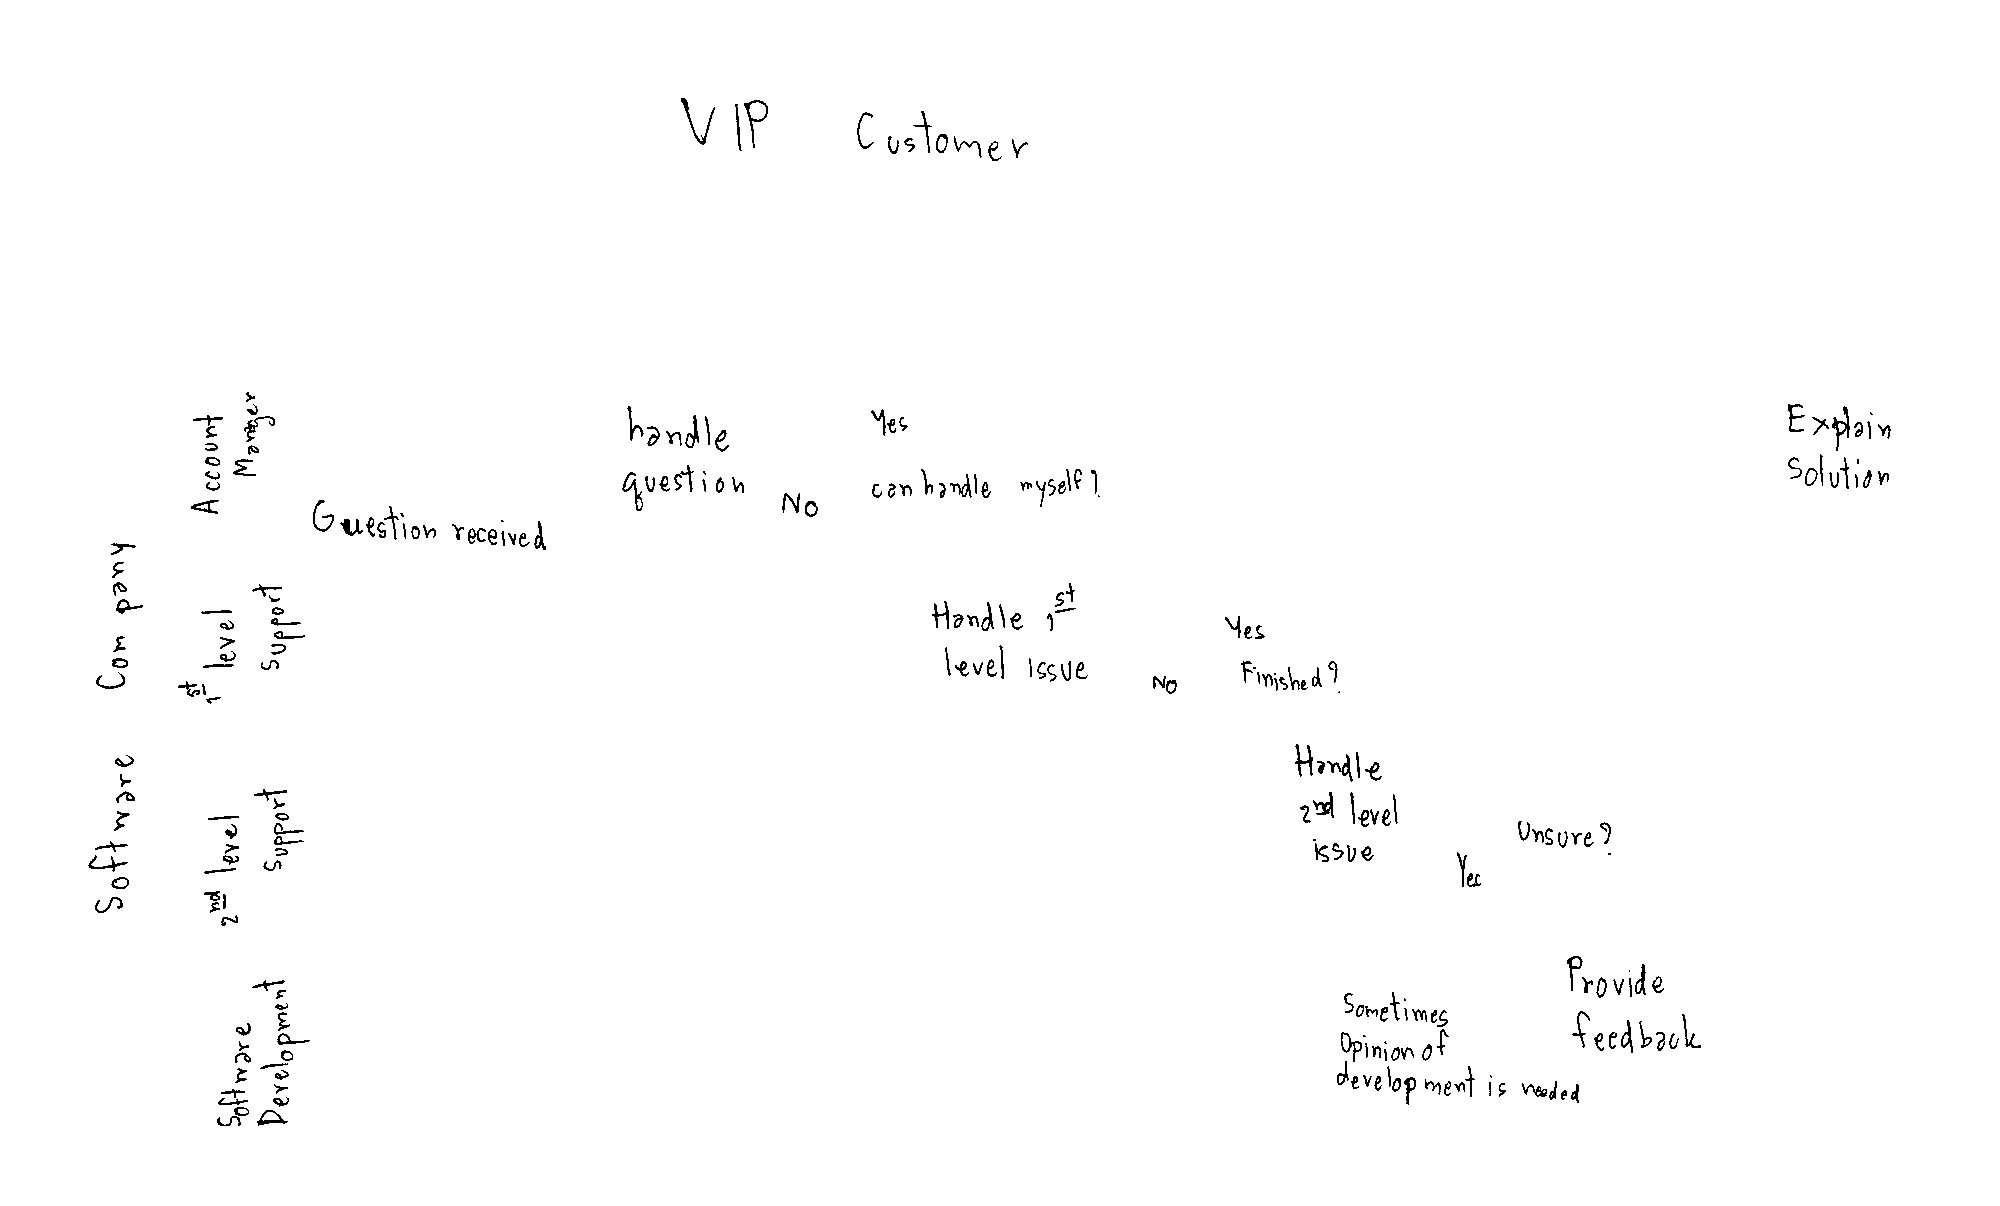 VIP Customer
Software Company
Account
Manager
Question received
handle
question
No
Yes
can handle myself?
Explain
Solution
1st level
Support
Handle 1st
level issue
No
Yes
Finished?
2nd level
Support
Handle
2nd level
issue
Yes
Unsure?
Software
Development
Sometimes
Opinion of
development is needed
Provide
feedback